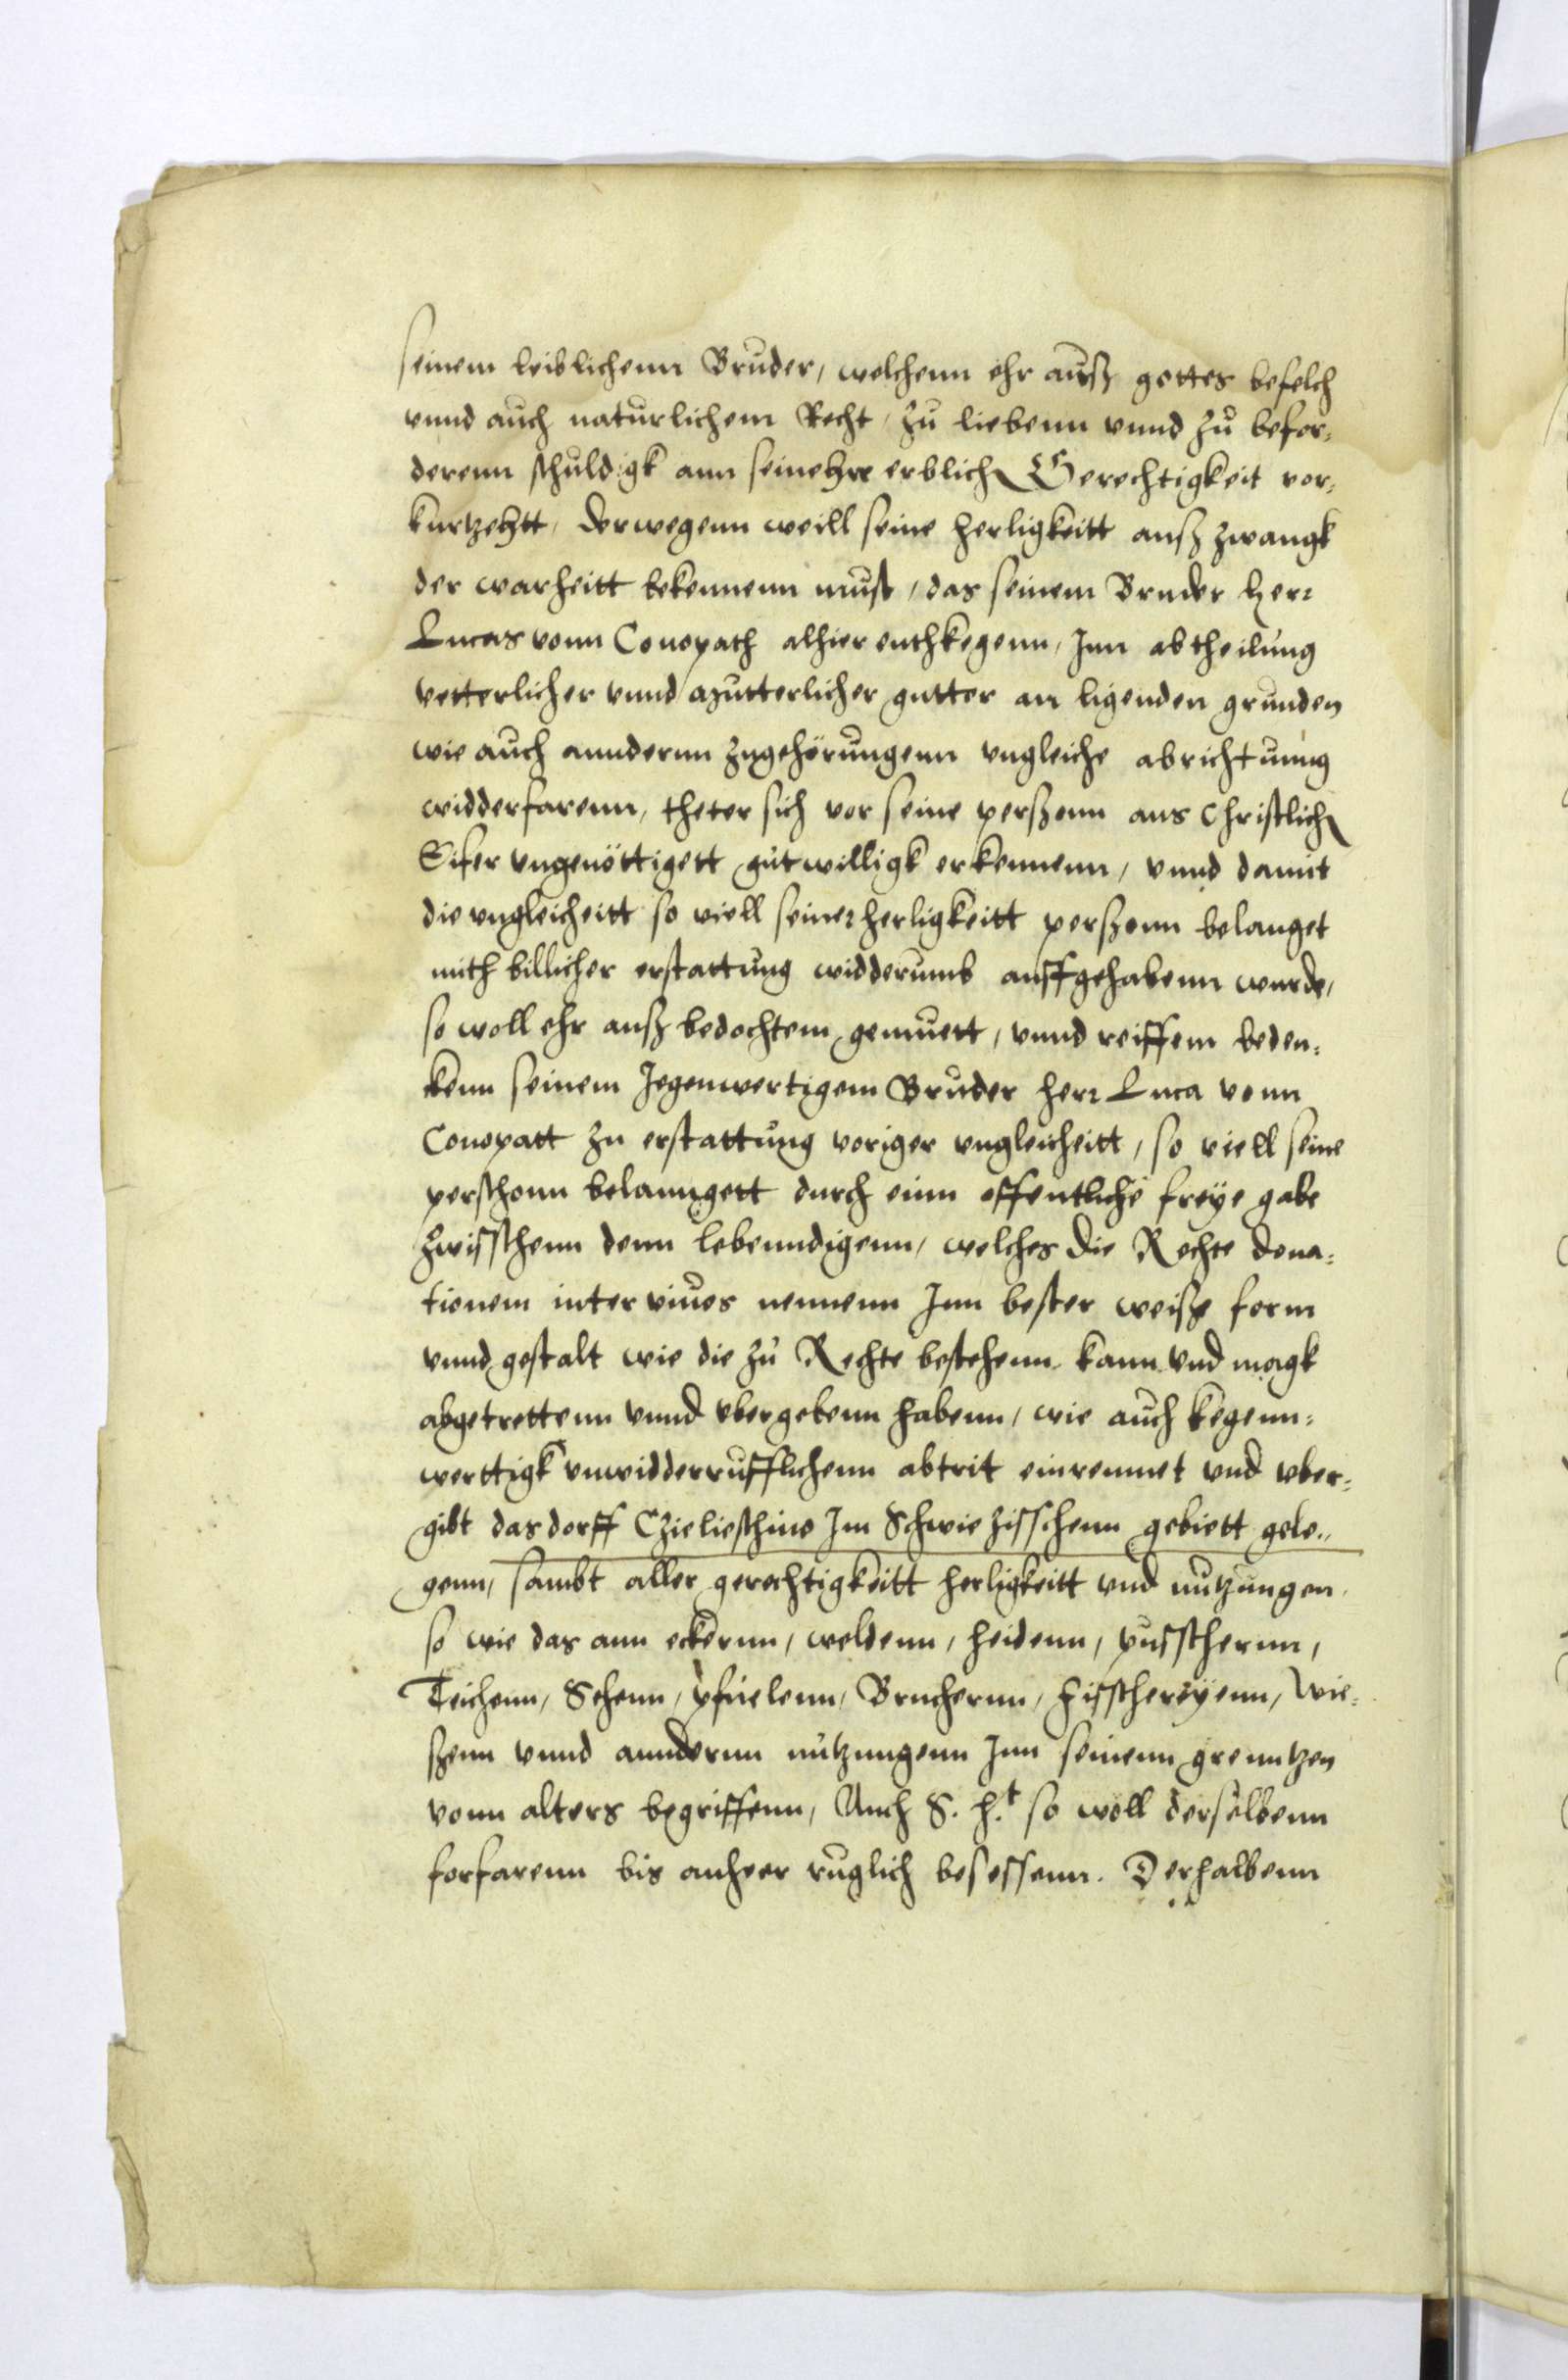 seinem leiblichenn Bruder, welchenn ehr auß gottes befelch
vnnd auch naturlichem Recht, zu liebenn vnnd zu befor=
derenn schuldigk ann seinehre erblich Gerechtigkeit vor=
kurtzehtt, Derwegenn weill seine herligkeitt auß zwangk
der warheitt bekennenn must, das seinem Bruder herr
Lucas vonn Conopath alhier enthkegenn, Inn abtheilung
vetterlicher vnnd mutterlicher gutter an ligenden grunden
wie auch annderenn zugehörungenn vngleiche abrichtunng
widderfarenn, theter sich vor seine perßonn aus Christlich
Eifer vngenöttigett gutwilligk erkennenn, vnnd damit
die vngleicheitt so viell seiner herligkeitt perßonn belanget
mith billicher erstattung widderumb auffgehabenn wurde,
so woll ehr auß bedochtem gemuett, vnnd reiffem beden=
kenn seinem Jegenwertigem Bruder herr Luca vonn
Conopatt zu erstattung voriger vngleicheitt, so viell seine
perschonn belanngett durch einn offentliche freye gabe
zwisschenn denn lebenndigenn, welches die Rechte dona=
tionem inter viuos nennenn Inn bester weiße form
vnnd gestalt wie die zu Rechte bestehenn kann vnd magk
abgetrettenn vnnd vbergebenn habenn, wie auch kegenn=
werttigk vnwidderrufflichenn abtrit einreumet vnd vber=
gibt das dorff Czielieschino Im Schwiezisschenn gebiett gele=
genn, sambt aller gerechtigkeitt herligkeitt vnd nutzungen
so wie das ann eckernn, weldenn, heidenn, pusschernn,
Teichenn, Sehenn, pfuelenn, Bruchernn, Fisschereyenn, Wie=
ßenn vnnd anndernn nutzungenn Inn seinenn grenntzen
vonn alters begriffenn, Auch S. h.t so woll derselbenn
forfarenn bis anheer ruglich besessenn. Derhalbenn